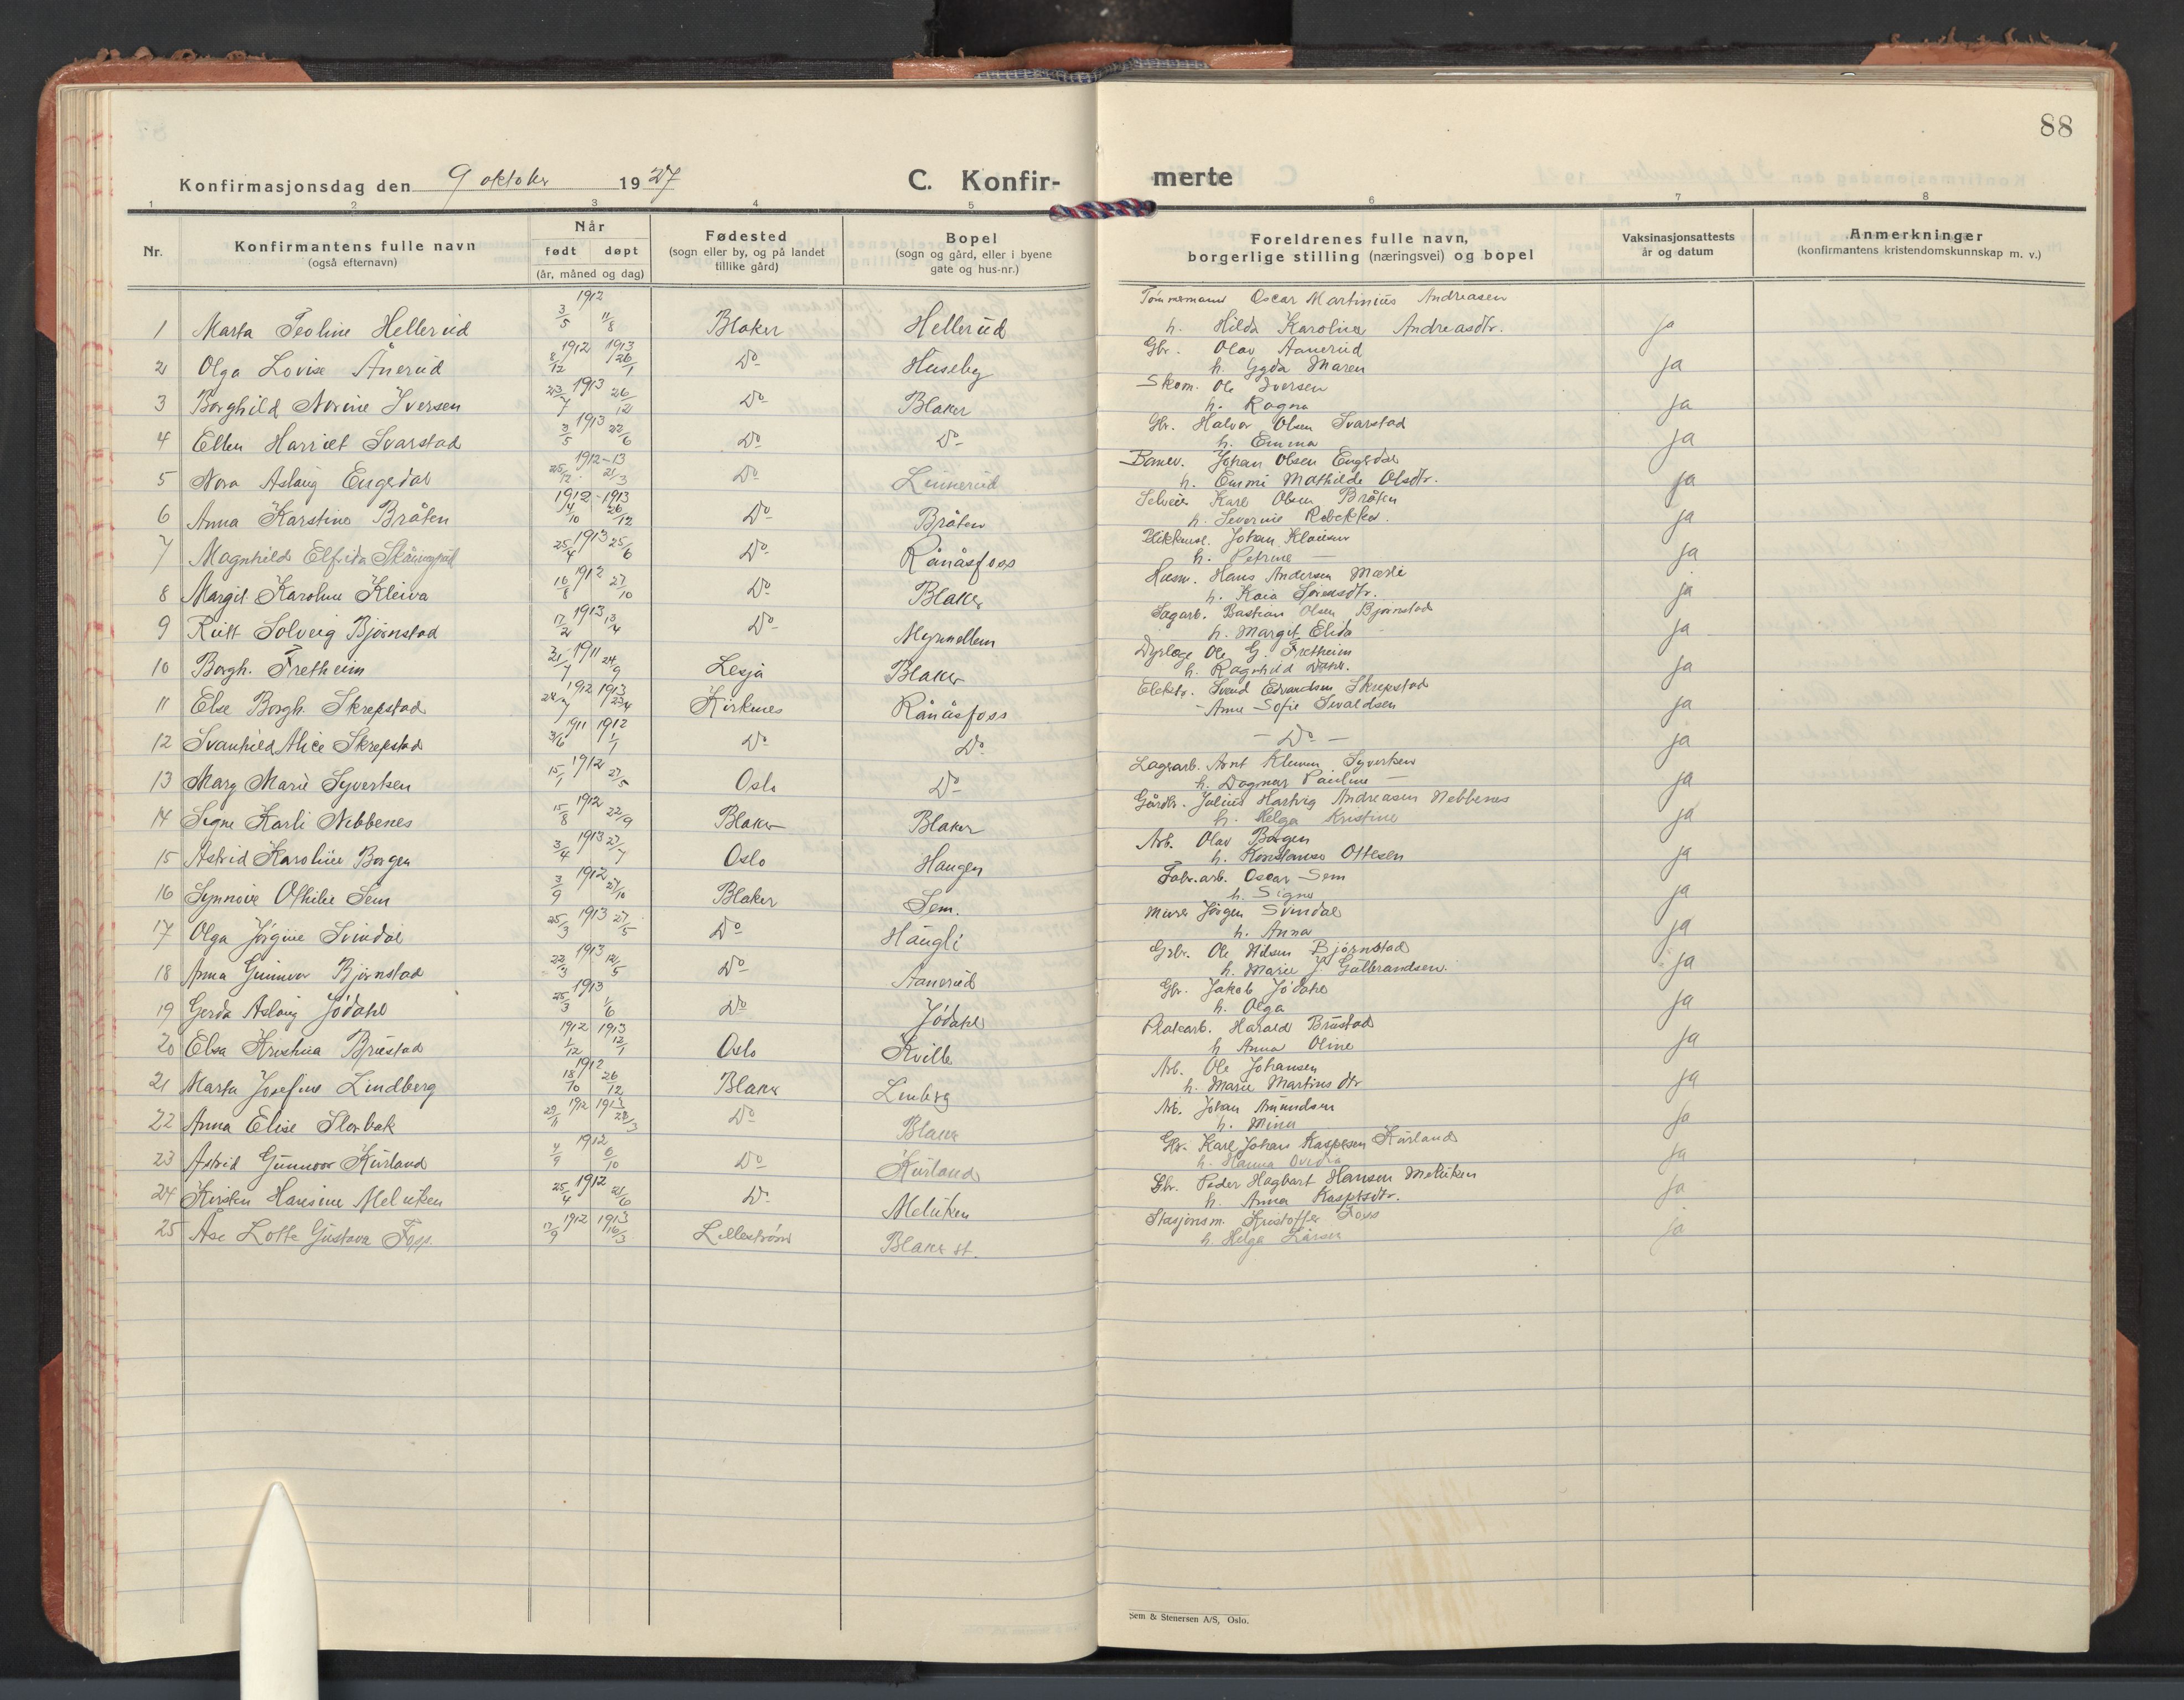 88
Konfirmasjonsdag den 9 oktober 1927 C. Konfir- merte
1 2 3 4 5 6 7 8
Nr. Konfirmantens fulle navn (også efternavn) Når født døpt (år, måned og dag) Fødested (sogn eller by, og på landet tillike gård) Bopel (sogn og gård, eller i byene gate og hus-nr.) Foreldrenes fulle navn, borgerlige stilling (næringsvei) og bopel Vaksinasjonsattests år og datum Anmerkninger (konfirmantens kristendomskunnskap m. v.)
1912 Tømmermann Oscar Martinius Andreasen
1 Marta Teoline Hellerud 3/5 11/8 Blaker Hellerud h. Hilda Karoline Andreasdtr. ja
1912 1913 Gbr. Olav Aanerud
2 Olga Lovise Ånerud 8/12 26/1 Do Huseby h. Gyda Maren ja
1913 Skom. Ole Iversen
3 Borghild Norine Iversen 23/7 26/12 Do Blaker h. Ragna ja
1913 Gbr. Halvor Olsen Svarstad
4 Ellen Harriet Svarstad 3/5 22/6 Do Do h. Emma ja
1912-13 Banev. Johan Olsen Engedal
5 Nora Aslaug Engedal 25/12 21/3 Do Linnerud h. Emmi Mathilde Olsdtr. ja
1912-1913 Selveier Karl Olsen Bråten
6 Anna Karstine Bråten 4/10 26/12 Do Bråten h. Severine Rebekka. ja
1913 Johan Klausen
7 Magnhild Elfrida 25/4 25/6 Do Rånåsfoss h. Petrine — ja
1912 Husm. Hans Andersen Mærli
8 Margit Karoline Kleiva 16/8 27/10 Do Blaker h. Kaia Sørensdtr. ja
1913 Sagarb. Bastian Olsen Bjørnstad
9 Rutt Solveig Bjørnstad 17/2 13/4 Do Myrmellem h. Margit Elida ja
1911 Dyrlæge Ole G. Fretheim
10 Borgh. Fretheim 21/7 24/9 Lesja Blaker h. Ragnhild ja
1912 1913 Elektr. Svend Edvardsen Skrepstad
11 Else Borgh. Skrepstad 28/7 23/4 Kirkenes Rånåsfoss - Anne Sofie Sevaldsen ja
1911 1912
12 Svanhild Alice Skrepstad 3/6 1/1 Do Do — Do — ja
1912 Lagrarb. Arnt Klemen Syvertsen
13 Mary Marie Syvertsen 15/1 27/5 Oslo Do h. Dagmar Pauline — ja
1912 Gårdbr. Julius Hartvig Andreasen Nebbenes
14 Signe Karli Nebbenes 15/8 22/9 Blaker Blaker h. Helga Kristine ja
1913 Arb. Olav Borgen
15 Astrid Karoline Borgen 3/4 27/7 Oslo Haugen h. Konstanse Ottesen ja
1912 Fabr.arb. Oscar Sem
16 Synnøve Othilie Sem 3/9 27/10 Blaker Sem. h. Signe ja
1913 Murer Jørgen Svindal
17 Olga Jørgine Svindal 25/3 27/5 Do Haugli h. Anna ja
1913 Gbr. Ole Nilsen Bjørnstad
18 Anna Gunnvor Bjørnstad 22/3 12/5 Do Aanerud h. Marie J. Gulbrandsen. ja
1913 Gbr. Jakob Jødahl
19 Gerda Aslaug Jødahl 25/3 1/6 Do Jødahl h. Olga ja
1912 1913 Platearb. Harald Brustad
20 Elsa Kristina Brustad 1/12 12/1 Oslo Kville h Anna Oline ja
1912 Arb. Ole Johansen
21 Marta Josefine Lindberg 18/10 26/12 Blaker Linberg h. Marie Martinsdtr ja
1912 1913 Arb. Johan Amundsen
22 Anna Elise Storbak 29/11 28/3 Do Blaker h. Mina ja
1912 Gbr. Karl Johan Kaspersen Kurland
23 Astrid Gunnvor Kurland 4/9 6/10 Do Kurland h. Hanna Ovidia ja
1912 Gbr. Peder Hagbart Hansen Melniken
24 Kirsten Hansine Melniken 25/4 21/6 Do Melniken h. Anna Kasprsdtr. ja
1912 1913 Stasjonsm. Kristoffer Foss
25 Åse Lotte Gustava Foss. 17/9 16/3 Lillestrøm Blaker st. h. Helga Larsen ja
Sem & Stenersen A/S, Oslo.